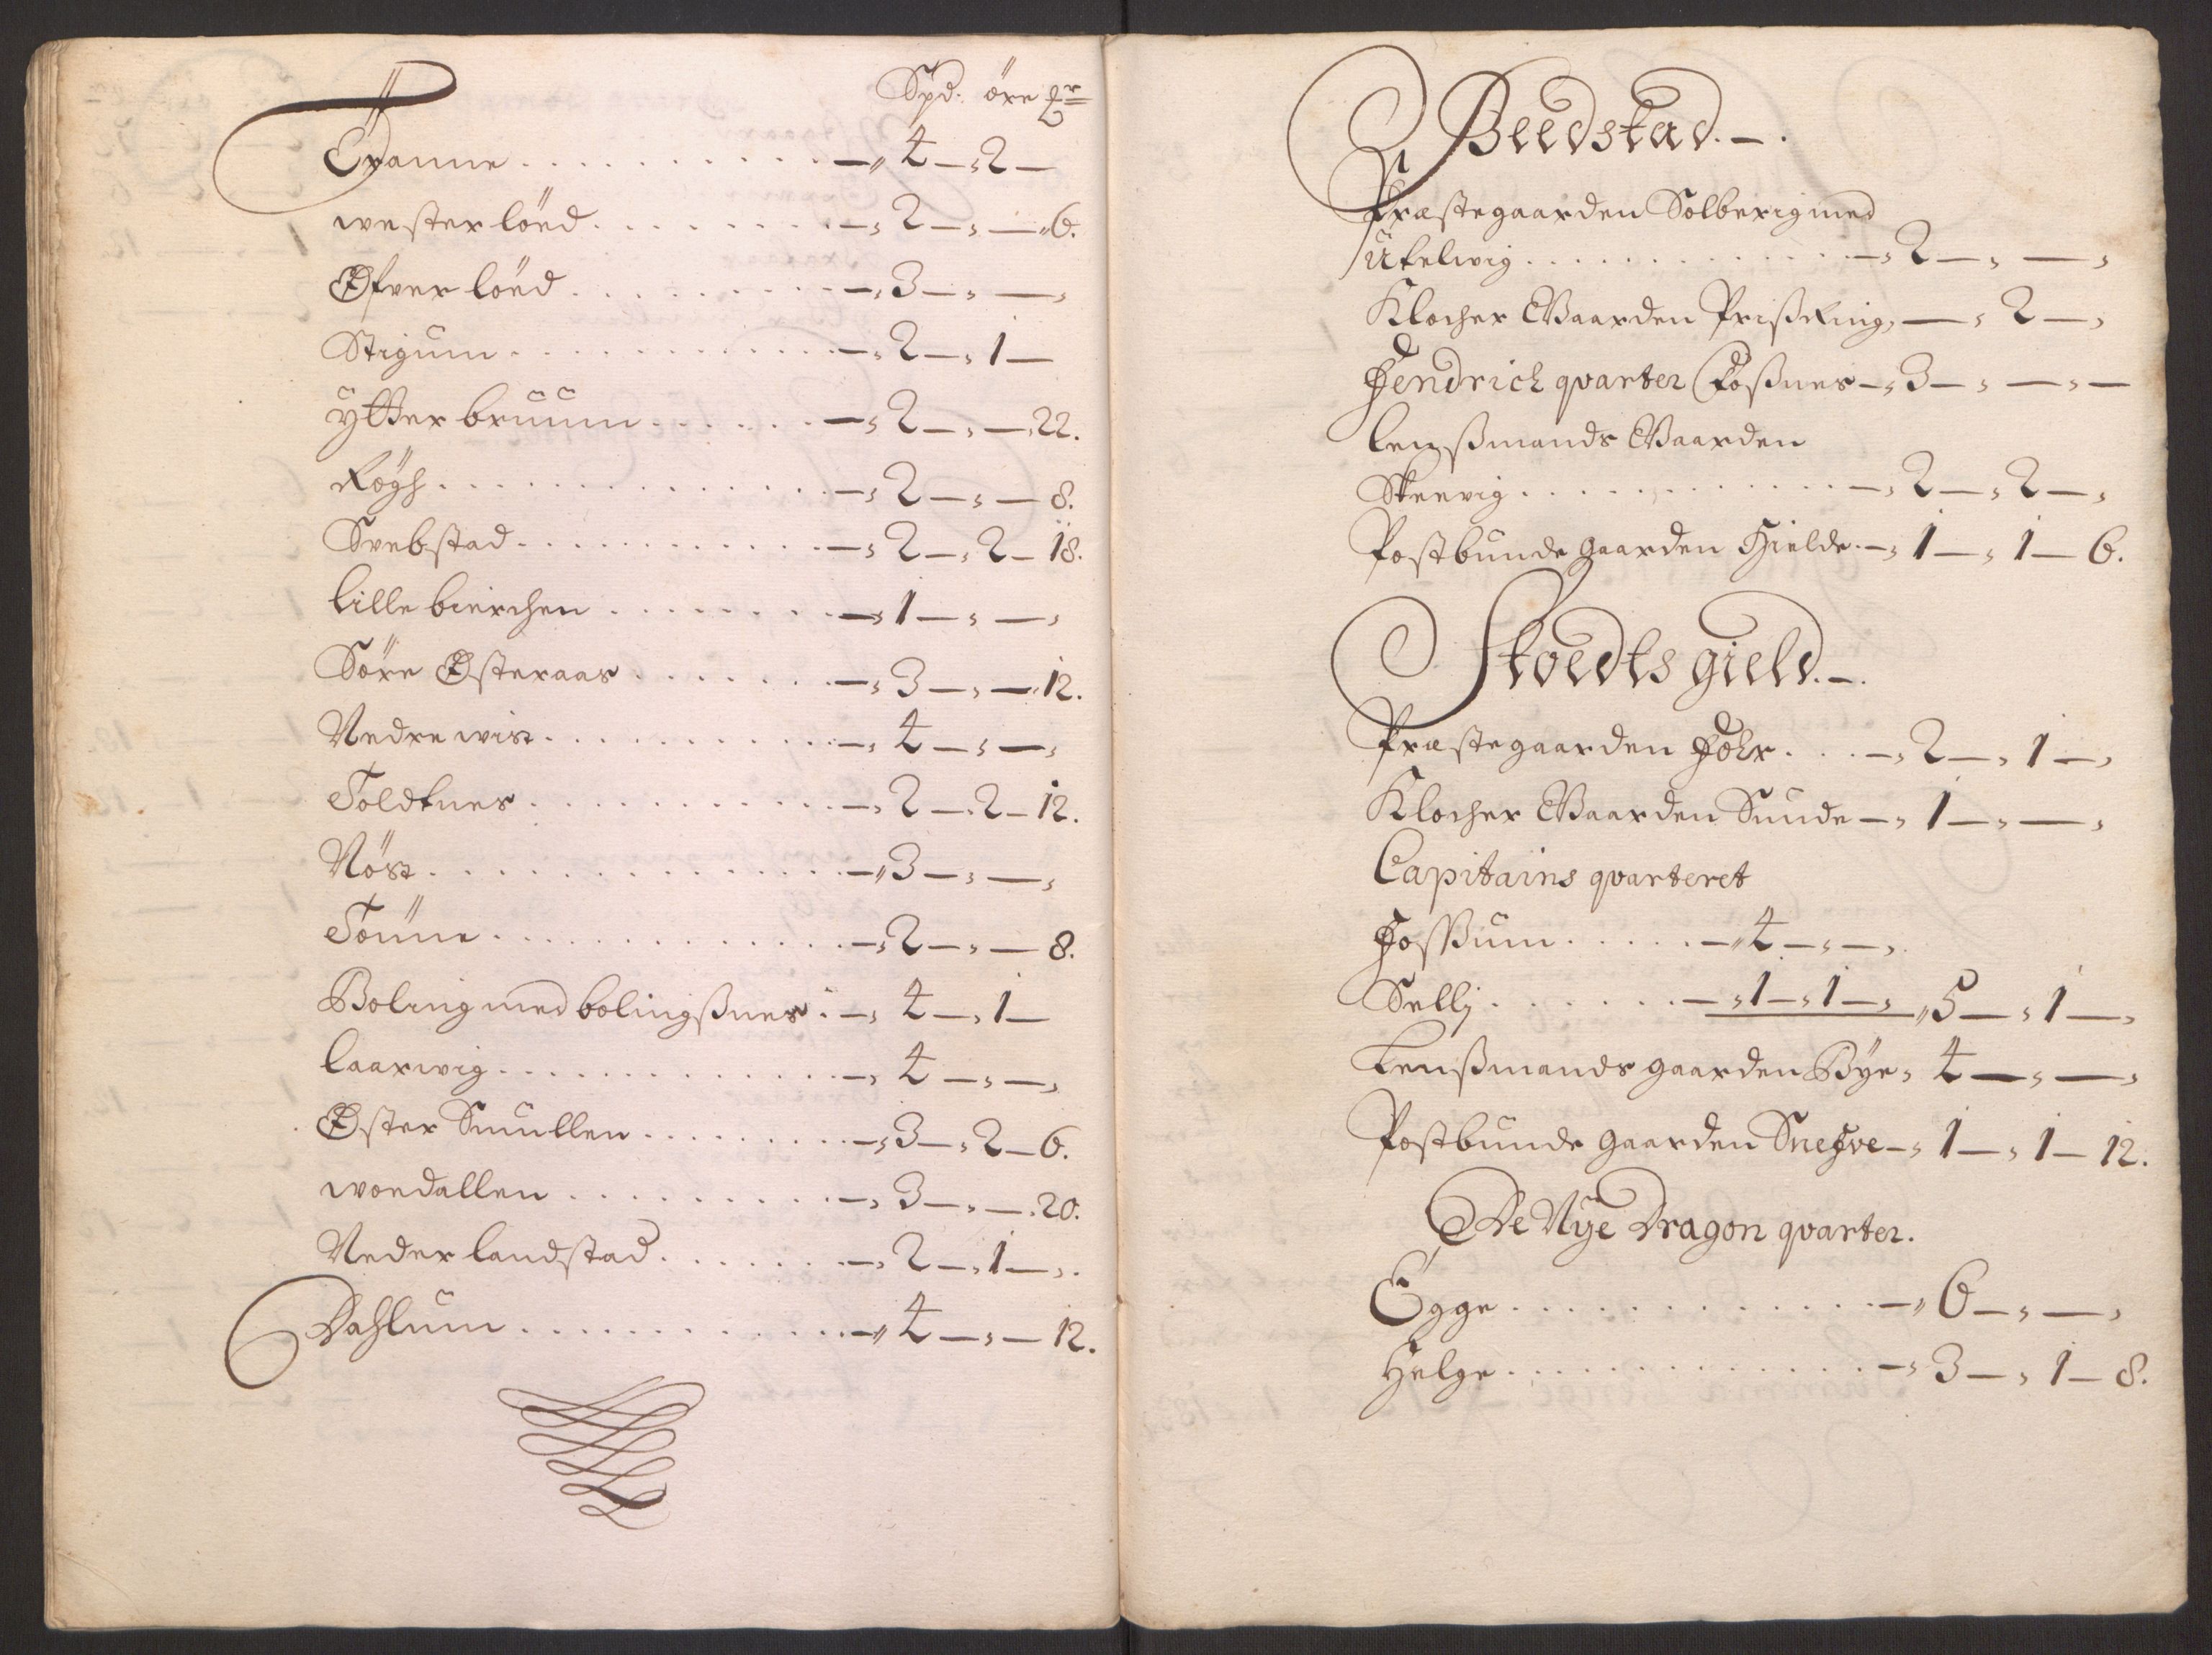 Spd. öre
Tranne . . . . . . . . . . . —„ 4 —, 2 —
wester löed . . . . . . . . —, 2 —, — „ 6.
Øfver löed . . . . . . . . —, 3 —, —,
Stigum . . . . . . . . . . . . —, 2 —, 1 —
ytter bruum . . . . . . —, 2 —, — 22.
Røgh . . . . . . . . . . . . . —, 2 —, — 8.
Svebstad . . . . . . . . . . . —, 2 —, 2 — 18.
lille bierchen . . . . . . . —, 1 —, —,
Söre Østeraas . . . . . . . —, 3 —, — 12.
Nedre wist . . . . . . . . . . —, 4 —, —,
Toldtnes . . . . . . . . . . . —, 2 —, 2 — 12.
Nöst . . . . . . . . . . . . . . —„ 3 —, —,
Tönne . . . . . . . . . . . . —, 2 —, — 8.
Boling med bolingßnes . —, 4 —, 1 —
laarwig . . . . . . . . . . . . —, 4 —, —,
Øster Smullen . . . . . . . . —, 3 —, 2 — 6.
woedallen . . . . . . . . . . —, 3 —, — 20.
Neder landstad . . . . . . —, 2 —, 1 —,
Dahlum . . . . . . . . . . . —„ 4 —, — 12.
Beedstad. — .
Præstegaarden Solberig med
Utelwig . . . . . . . . . . . . —, 2 —, —,
Klocher Gaarden Prißring, —, 2 —,
Hendrich quarter Foßnes —, 3 —, —, —
lenßmands Gaarden
Steevig . . . . . . . . . . . . —, 2 —, 2 —,
Postbunde gaarden Hielde . —, 1 —, 1 — 6.
Stoedts gield. — .
Præstegaarden Holr . . . —, 2 —, 1 —,
Klocher Gaarden Sunde —, 1 —, —,
Capitains qvarteret
Fossum . . . . . —„ 4 —, —,
Sellj . . . . . . . —, 1 —, 1 —, „ 5 —, 1 —,
Lenßmands gaarden Bye, 4 —, —,
Postbunde gaarden Snefve —, 1 —, 1 — 12.
De Nye Dragon qvarter.
Egge . . . . . . . . . . . . . —„ 6 —, —,
Helge . . . . . . . . . . . . . —, 3 —, 1 — 8.